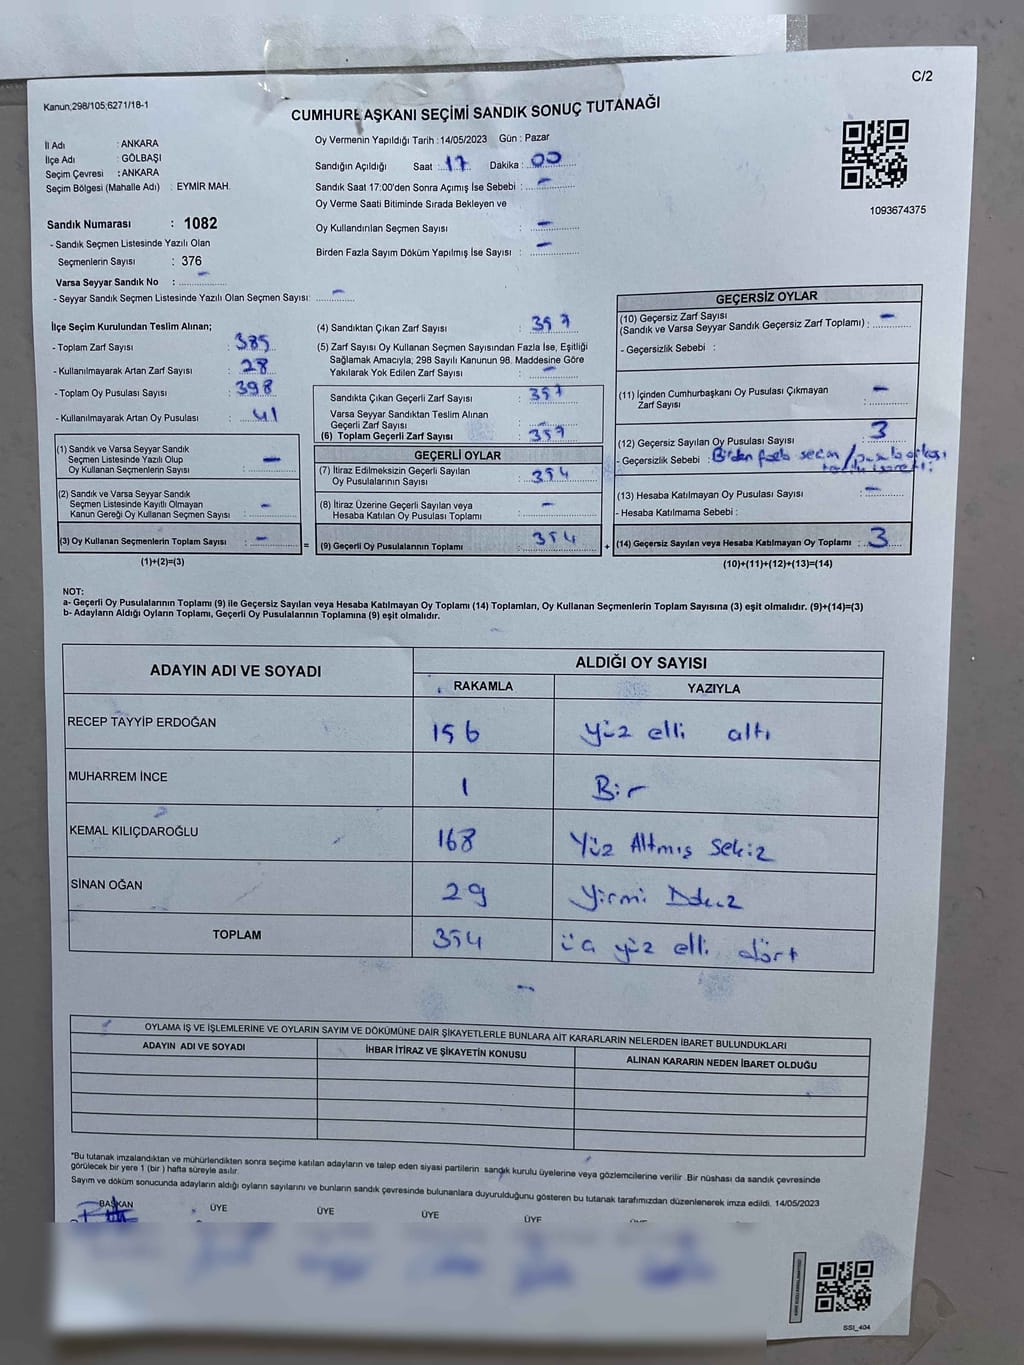 C/2
Kanun;298/105,6271/18-1
CUMHURBAŞKANI SEÇİMİ SANDIK SONUÇ TUTANAĞI
İl Adı : ANKARA
İlçe Adı : GÖLBAŞI
Seçim Çevresi : ANKARA
Seçim Bölgesi (Mahalle Adı) : EYMİR MAH.
Oy Vermenin Yapıldığı Tarih : 14/05/2023 Gün : Pazar
Sandığın Açıldığı Saat : 17 Dakika : 00
Sandık Saat 17:00'den Sonra Açımış İse Sebebi : -
Oy Verme Saati Bitiminde Sırada Bekleyen ve
Oy Kullandırılan Seçmen Sayısı : -
Birden Fazla Sayım Döküm Yapılmış İse Sayısı : -
1093674375
Sandık Numarası : 1082
- Sandık Seçmen Listesinde Yazılı Olan
Seçmenlerin Sayısı : 376
Varsa Seyyar Sandık No : -
- Seyyar Sandık Seçmen Listesinde Yazılı Olan Seçmen Sayısı: -
İlçe Seçim Kurulundan Teslim Alınan;
- Toplam Zarf Sayısı : 385
- Kullanılmayarak Artan Zarf Sayısı : 28
- Toplam Oy Pusulası Sayısı : 398
- Kullanılmayarak Artan Oy Pusulası : 41
(1) Sandık ve Varsa Seyyar Sandık
Seçmen Listesinde Yazılı Olup
Oy Kullanan Seçmenlerin Sayısı : -
(2) Sandık ve Varsa Seyyar Sandık
Seçmen Listesinde Kayıtlı Olmayan
Kanun Gereği Oy Kullanan Seçmen Sayısı : -
(3) Oy Kullanan Seçmenlerin Toplam Sayısı : -
(1)+(2)=(3)
(4) Sandıktan Çıkan Zarf Sayısı : 357
(5) Zarf Sayısı Oy Kullanan Seçmen Sayısından Fazla İse, Eşitliği
Sağlamak Amacıyla; 298 Sayılı Kanunun 98. Maddesine Göre
Yakılarak Yok Edilen Zarf Sayısı : -
Sandıkta Çıkan Geçerli Zarf Sayısı : 357
Varsa Seyyar Sandıktan Teslim Alınan
Geçerli Zarf Sayısı : -
(6) Toplam Geçerli Zarf Sayısı : 357
GEÇERLİ OYLAR
(7) İtiraz Edilmeksizin Geçerli Sayılan
Oy Pusulalarının Sayısı : 354
(8) İtiraz Üzerine Geçerli Sayılan veya
Hesaba Katılan Oy Pusulası Toplamı : -
= (9) Geçerli Oy Pusulalarının Toplamı : 354 +
GEÇERSİZ OYLAR
(10) Geçersiz Zarf Sayısı
(Sandık ve Varsa Seyyar Sandık Geçersiz Zarf Toplamı) : -
- Geçersizlik Sebebi :
(11) İçinden Cumhurbaşkanı Oy Pusulası Çıkmayan
Zarf Sayısı : -
(12) Geçersiz Sayılan Oy Pusulası Sayısı : 3
- Geçersizlik Sebebi : Birden fazla seçim / pusula arkası
(13) Hesaba Katılmayan Oy Pusulası Sayısı : -
- Hesaba Katılmama Sebebi :
(14) Geçersiz Sayılan veya Hesaba Katılmayan Oy Toplamı : 3
(10)+(11)+(12)+(13)=(14)
NOT:
a- Geçerli Oy Pusulalarının Toplamı (9) ile Geçersiz Sayılan veya Hesaba Katılmayan Oy Toplamı (14) Toplamları, Oy Kullanan Seçmenlerin Toplam Sayısına (3) eşit olmalıdır. (9)+(14)=(3)
b- Adayların Aldığı Oyların Toplamı, Geçerli Oy Pusulalarının Toplamına (9) eşit olmalıdır.
ADAYIN ADI VE SOYADI ALDIĞI OY SAYISI
RAKAMLA YAZIYLA
RECEP TAYYİP ERDOĞAN 156 Yüz elli altı
MUHARREM İNCE 1 Bir
KEMAL KILIÇDAROĞLU 168 Yüz Altmış Sekiz
SİNAN OĞAN 29 Yirmi Dokuz
TOPLAM 354 üç yüz elli dört
OYLAMA İŞ VE İŞLEMLERİNE VE OYLARIN SAYIM VE DÖKÜMÜNE DAİR ŞİKAYETLERLE BUNLARA AİT KARARLARIN NELERDEN İBARET BULUNDUKLARI
ADAYIN ADI VE SOYADI İHBAR İTİRAZ VE ŞİKAYETİN KONUSU ALINAN KARARIN NEDEN İBARET OLDUĞU
"Bu tutanak imzalandıktan ve mühürlendikten sonra seçime katılan adayların ve talep eden siyasi partilerin sandık kurulu üyelerine veya gözlemcilerine verilir. Bir nüshası da sandık çevresinde
görülecek bir yere 1 (bir ) hafta süreyle asılır.
Sayım ve döküm sonucunda adayların aldığı oyların sayılarını ve bunların sandık çevresinde bulunanlara duyurulduğunu gösteren bu tutanak tarafımızdan düzenlenerek imza edildi. 14/05/2023
BAŞKAN ÜYE ÜYE ÜYE ÜYE
SSI_404